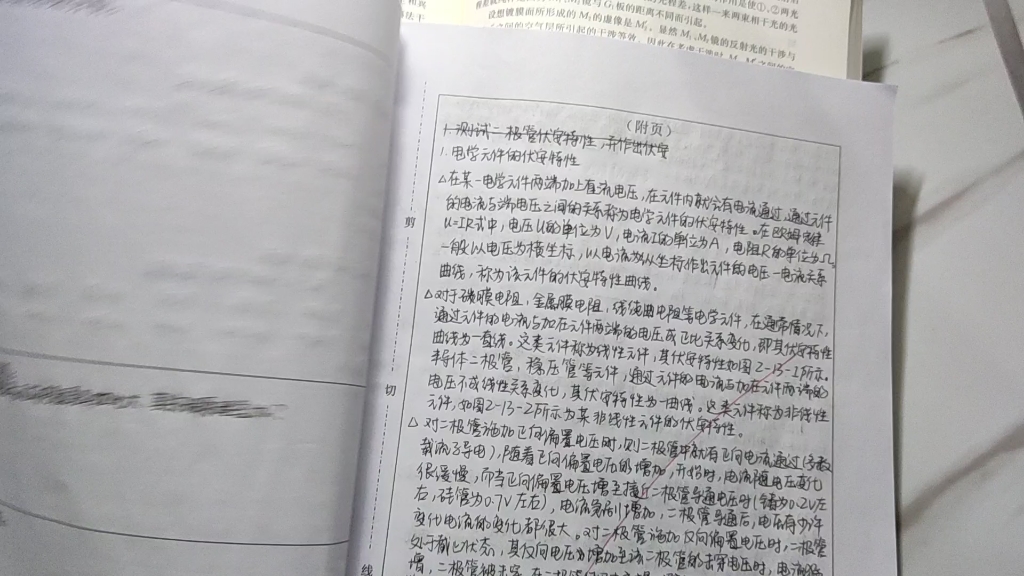 镜与G₁板的距离不同而引起。
设想镀膜而所形成的M₂的虚像是M₂′。显然M₁、M₂镜的反射光的干涉与
之间的空气层所引起的干涉等效。因此在考虑干涉时，M₁、M₂′之间的空
（附页）
1. 测试二极管伏安特性，并作出伏安
1. 电学元件的伏安特性
△在某一电学元件两端加上直流电压，在元件内就会有电流通过，通过元件
的电流与端电压之间的关系称为电学元件的伏安特性。在欧姆定律
U=IR式中，电压U的单位为V，电流I的单位为A，电阻R的单位为Ω。
一般以电压为横坐标，以电流为纵坐标作出元件的电压-电流关系
曲线，称为该元件的伏安特性曲线。
△对于碳膜电阻，金属膜电阻，线绕电阻等电学元件，在通常情况下，
通过元件的电流与加在元件两端的电压成正比关系变化，即其伏安特性
曲线为一直线。这类元件称为线性元件，其伏安特性如图2-13-1所示。
半导体二极管，稳压管等元件，通过元件的电流与加在元件两端的
电压不成线性关系变化，其伏安特性为一曲线。这类元件称为非线性
元件，如图2-13-2所示为某非线性元件的伏安特性。
△对二极管施加正向偏置电压时，则二极管中就有正向电流通过（多数
载流子导电），随着正向偏置电压的增加，开始时，电流随电压变化
很缓慢，而当正向偏置电压增至接近二极管导通电压时（锗为0.2V左
右，硅管为0.7V左右），电流急剧增加，二极管导通后，电压有少许
变化电流的变化都很大。对二极管施加反向偏置电压时，二极管
处于截止状态，其反向电压增加至该二极管的击穿电压时，电流
增，二极管被击穿
剪
切
线